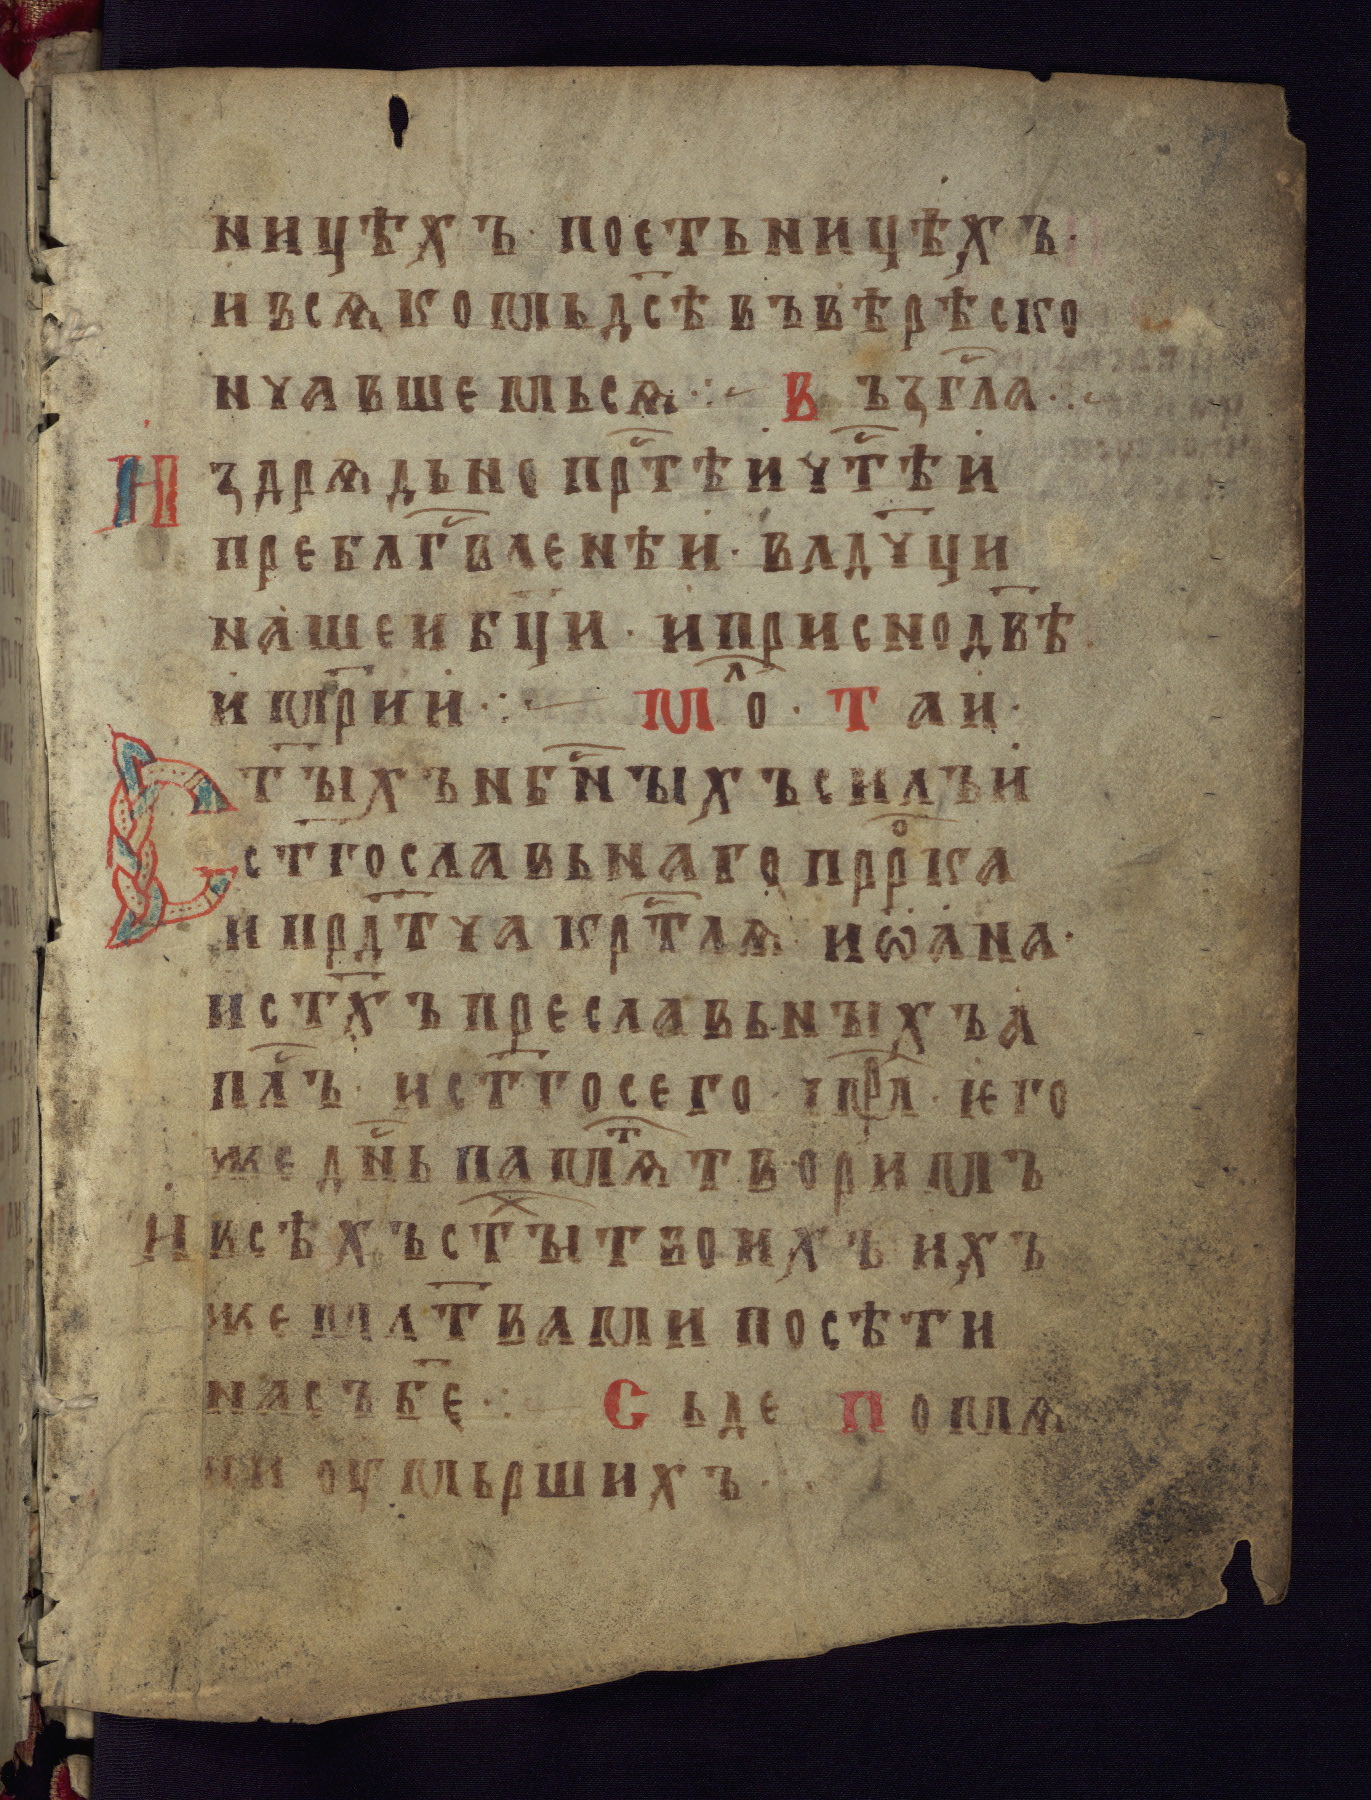 ницѣхъ· постьницѣхъ·
ивсѧкомьдс҃ѣвъвѣрѣско
нчавшемьсѧ·:· Възгл҃а·:·
Издрѧдьнопрт҃ѣичт҃ѣи
пребл҃гв҃ленѣи· влдч҃ци
нашеибц҃и· иприснодв҃ѣ
имр҃ии·:· Мл҃о· Таи·
Ст҃ыхънбн҃ыхъсилъи
ст҃гославьнагопрр҃ока
ипрдт҃чакрт҃лѧ иѡана·
ист҃хъпреславьныхъа
пл҃ъ· ист҃госего· ипр҃л· ѥго
жедн҃ьпамѧ҃ттворимъ
Ивсѣхъст҃ыхтвоихъихъ
жемлт҃вамипосѣти
насъб҃е·:· Сьде помѧ
ни оумьршихъ·:·